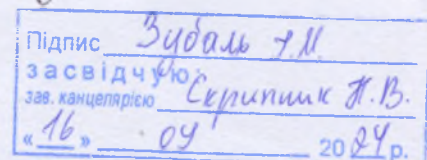 Підпис Зубаль І.М.
засвідчую:
зав. канцелярією Скрипник Н.В.
«16» 04 2024 р.